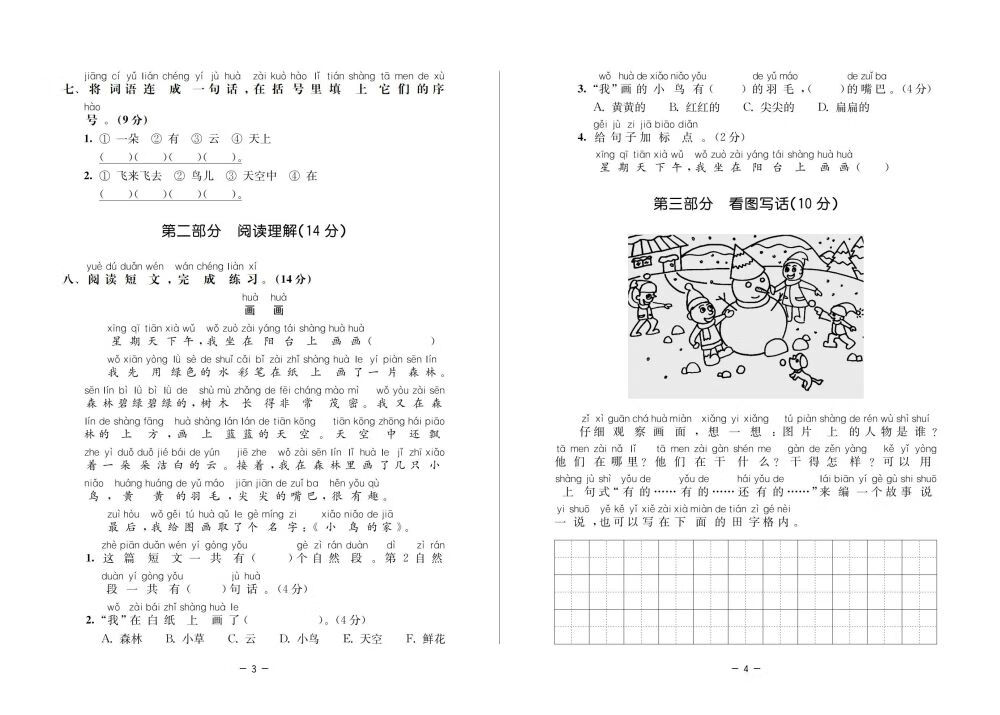 jiāng cí yǔ lián chéng yí jù huà zài kuò hào lǐ tián shàng tā men de xù
七、将 词 语 连 成 一 句 话 , 在 括 号 里 填 上 它 们 的 序
hào
号 。(9 分)
1. ① 一朵 ② 有 ③ 云 ④ 天上
( )( )( )( )。
2. ① 飞来飞去 ② 鸟儿 ③ 天空中 ④ 在
( )( )( )( )。
第二部分 阅读理解(14 分)
yuè dú duǎn wén wán chéng liàn xí
八、阅 读 短 文 , 完 成 练 习 。(14 分)
huà huà
画 画
xīng qī tiān xià wǔ wǒ zuò zài yáng tái shàng huà huà
星 期 天 下 午 , 我 坐 在 阳 台 上 画 画 ( )
wǒ xiān yòng lǜ sè de shuǐ cǎi bǐ zài zhǐ shàng huà le yí piàn sēn lín
我 先 用 绿 色 的 水 彩 笔 在 纸 上 画 了 一 片 森 林 。
sēn lín bì lǜ bì lǜ de shù mù zhǎng de fēi cháng mào mì wǒ yòu zài sēn
森 林 碧 绿 碧 绿 的 , 树 木 长 得 非 常 茂 密 。 我 又 在 森
lín de shàng fāng huà shàng lán lán de tiān kōng tiān kōng zhōng hái piāo
林 的 上 方 , 画 上 蓝 蓝 的 天 空 。 天 空 中 还 飘
zhe yì duǒ duǒ jié bái de yún jiē zhe wǒ zài sēn lín lǐ huà le jǐ zhī xiǎo
着 一 朵 朵 洁 白 的 云 。 接 着 , 我 在 森 林 里 画 了 几 只 小
niǎo huáng huáng de yǔ máo jiān jiān de zuǐ ba hěn yǒu qù
鸟 , 黄 黄 的 羽 毛 , 尖 尖 的 嘴 巴 , 很 有 趣 。
zuì hòu wǒ gěi tú huà qǔ le gè míng zi xiǎo niǎo de jiā
最 后 , 我 给 图 画 取 了 个 名 字 :《 小 鸟 的 家 》。
zhè piān duǎn wén yí gòng yǒu gè zì rán duàn dì zì rán
1. 这 篇 短 文 一 共 有 ( )个 自 然 段 。 第 2 自 然
duàn yí gòng yǒu jù huà
段 一 共 有 ( )句 话 。(4 分)
wǒ zài bái zhǐ shàng huà le
2. “我”在 白 纸 上 画 了 ( )。(4 分)
A. 森林 B. 小草 C. 云 D. 小鸟 E. 天空 F. 鲜花
— 3 —
wǒ huà de xiǎo niǎo yǒu de yǔ máo de zuǐ ba
3. “我”画 的 小 鸟 有 ( )的 羽 毛 ,( )的 嘴 巴 。(4 分)
A. 黄黄的 B. 红红的 C. 尖尖的 D. 扁扁的
gěi jù zi jiā biāo diǎn
4. 给 句 子 加 标 点 。(2 分)
xīng qī tiān xià wǔ wǒ zuò zài yáng tái shàng huà huà
星 期 天 下 午 , 我 坐 在 阳 台 上 画 画 ( )
第三部分 看图写话(10 分)
zǐ xì guān chá huà miàn xiǎng yi xiǎng tú piàn shàng de rén wù shì shuí
仔 细 观 察 画 面 , 想 一 想 : 图 片 上 的 人 物 是 谁 ?
tā men zài nǎ lǐ tā men zài gàn shén me gàn de zěn yàng kě yǐ yòng
他 们 在 哪 里 ? 他 们 在 干 什 么 ? 干 得 怎 样 ? 可 以 用
shàng jù shì yǒu de yǒu de hái yǒu de lái biān yí gè gù shi shuō
上 句 式 “有 的 …… 有 的 …… 还 有 的 ……”来 编 一 个 故 事 说
yi shuō yě kě yǐ xiě zài xià miàn de tián zì gé nèi
一 说 , 也 可 以 写 在 下 面 的 田 字 格 内 。
— 4 —